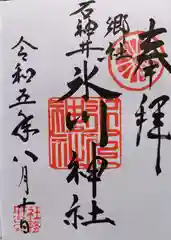 奉拝
郷社
石神井
氷川神社
令和五年八月十日